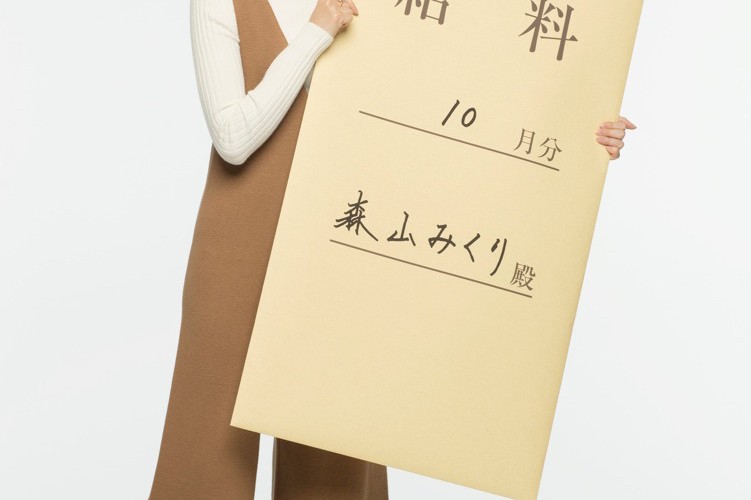 給料
10月分
森山みくり殿